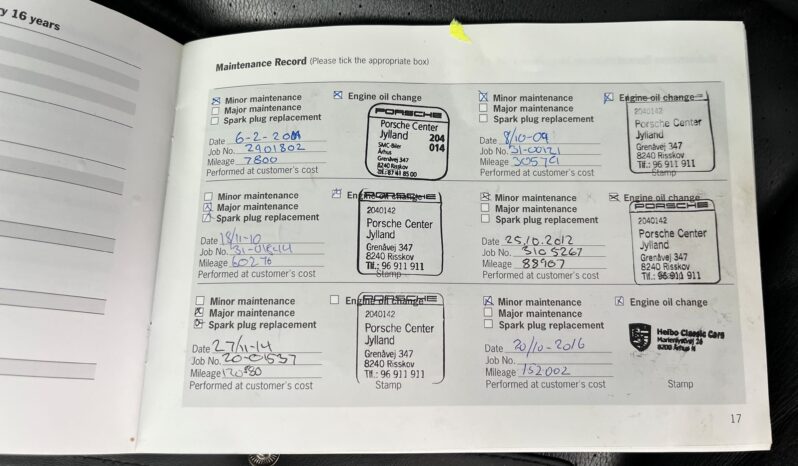 y 16 years
Maintenance Record (Please tick the appropriate box)
Minor maintenance
Major maintenance
Spark plug replacement
Engine oil change
Date 6-2-
Job No. 2901802
Mileage 7800
Performed at customer's cost
PORSCHE
Porsche Center
Jylland
204
014
SMC-Biler
Århus
Grenåvej 347
8240 Risskov
Tlf.: 87 41 85 00
Minor maintenance
Major maintenance
Spark plug replacement
Engine oil change
Date 8/10-09
Job No. 31-00121
Mileage
Performed at customer's cost
2040142
Porsche Center
Jylland
Grenåvej 347
8240 Risskov
Tlf.: 96 911 911
Stamp
Minor maintenance
Major maintenance
Spark plug replacement
Engine oil change
Date 18/11-10
Job No.
Mileage 60276
Performed at customer's cost
PORSCHE
2040142
Porsche Center
Jylland
Grenåvej 347
8240 Risskov
Tlf.: 96 911 911
Stamp
Minor maintenance
Major maintenance
Spark plug replacement
Engine oil change
Date 25.10.2012
Job No. 3105267
Mileage 88907
Performed at customer's cost
PORSCHE
2040142
Porsche Center
Jylland
Grenåvej 347
8240 Risskov
Tlf.: 96 911 911
Minor maintenance
Major maintenance
Spark plug replacement
Engine oil change
Date 27/11-14
Job No. 20-01537
Mileage
Performed at customer's cost
PORSCHE
2040142
Porsche Center
Jylland
Grenåvej 347
8240 Risskov
Tlf.: 96 911 911
Stamp
Minor maintenance
Major maintenance
Spark plug replacement
Engine oil change
Date 20/10-2016
Job No.
Mileage 152002
Performed at customer's cost
Helbo Classic Cars
8200 Århus N
Stamp
17